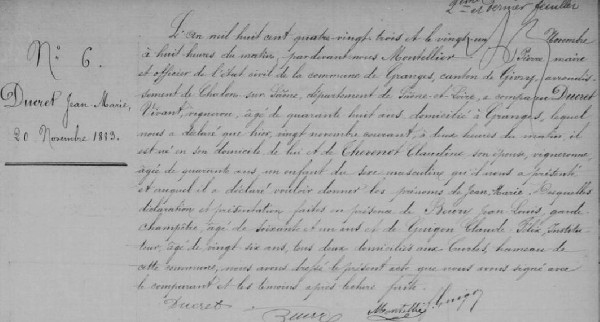 2ème et dernier feuillet
N° 6.
Ducret Jean Marie,
20 Novembre 1883.
L'an mil huit cent quatre-vingt trois et le vingt un Novembre
à huit heures du matin, par devant nous Montellier Pierre maire
et officier de l'état civil de la commune de Granges, canton de Givry, arrondis-
sement de Chalon-sur-Saône, département de Saône-et-Loire, a comparu Ducret
Vivant, vigneron, âgé de quarante huit ans domicilié à Granges, lequel
nous a déclaré que hier, vingt novembre courant, à deux heures du matin, il
est né en son domicile de lui et de Chevenet Claudine son épouse, vigneronne,
âgée de quarante ans, un enfant du sexe masculin qu'il nous a présenté
et auquel il a déclaré vouloir donner les prénoms de Jean-Marie. Lesquelles
déclaration et présentation faites en présence de Jean Louis, garde-
champêtre, âgé de soixante et un ans et de Guigon Claude Félix, Institu-
teur, âgé de vingt six ans, tous deux domiciliés aux hameau de
cette commune, nous avons dressé le présent acte que nous avons signé avec
le comparant et les témoins après lecture faite.
Ducret
Montellier Guigon